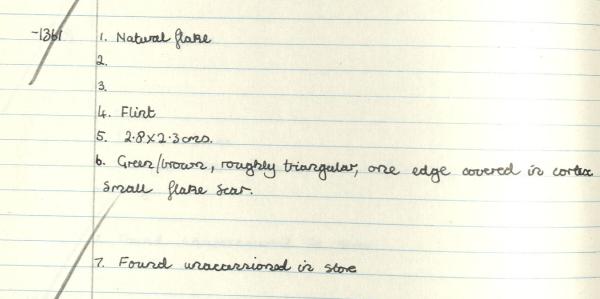 -1361 1. Natural flake
2.
3.
4. Flint
5. 2.8x2.3cms.
6. Green/brown, roughly triangular, one edge covered in cortex
small flake scar.
7. Found unaccessioned in store